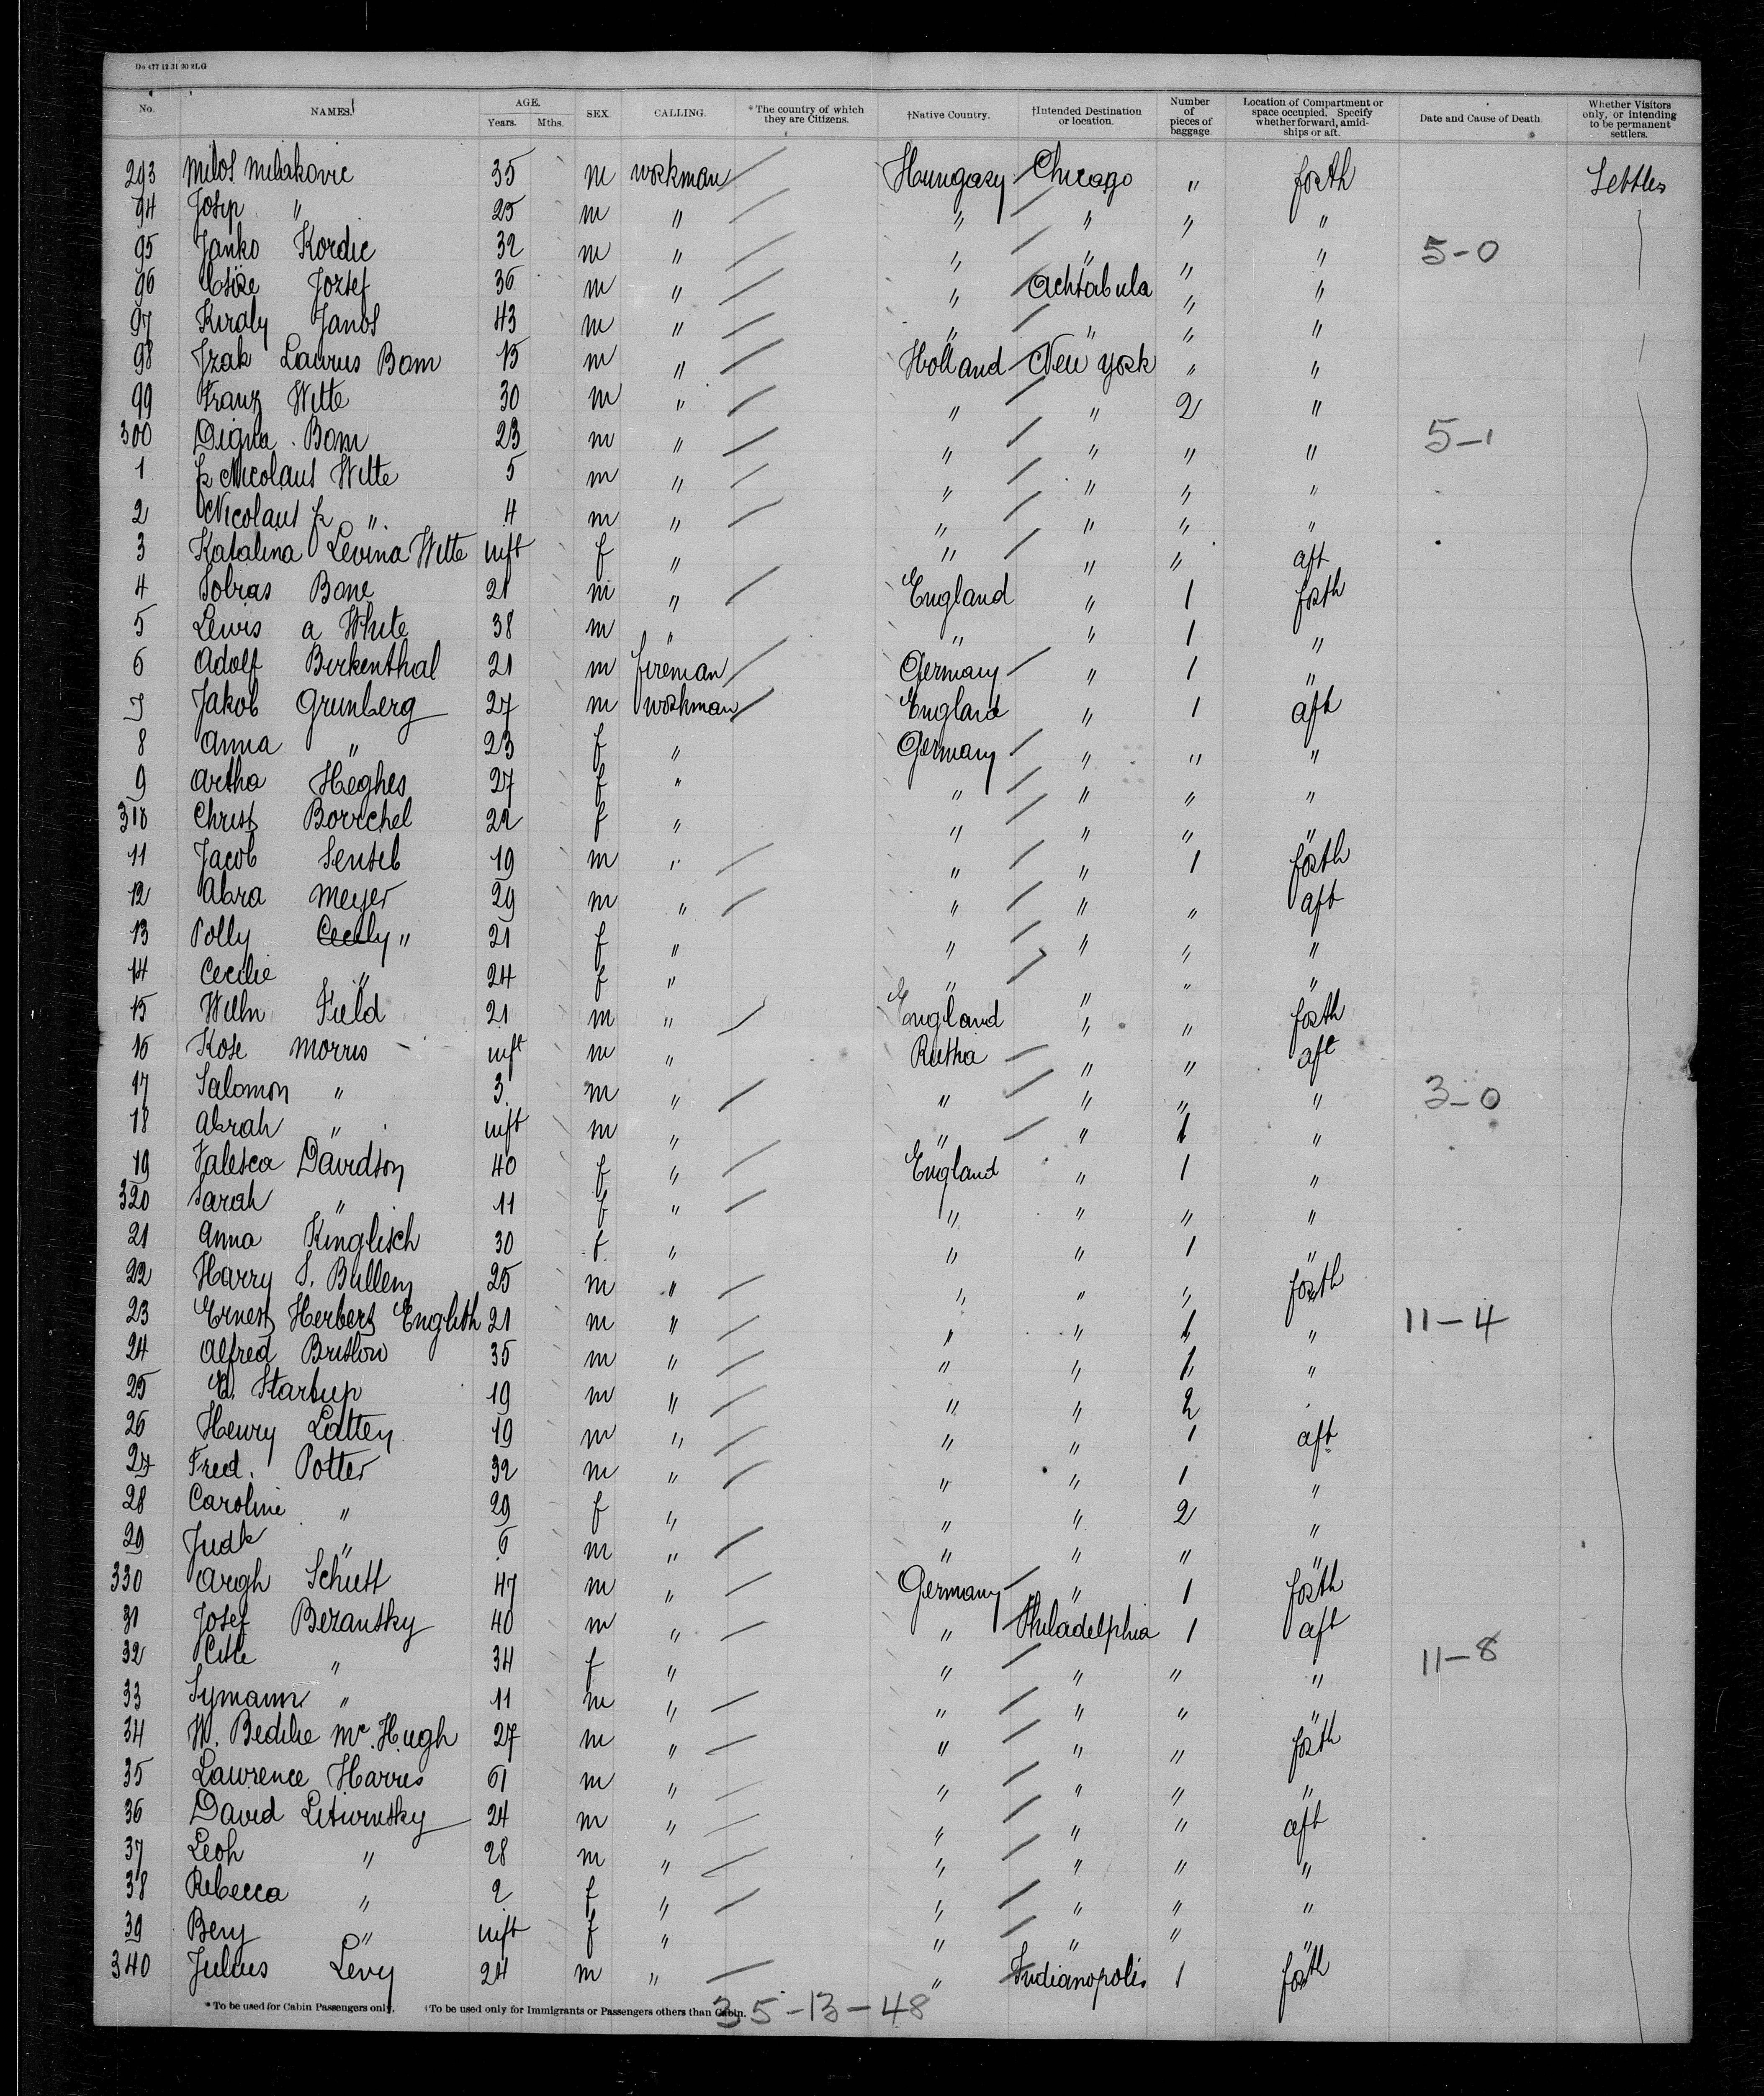 Do 477 12 31 20 2LG
No. NAMES. AGE. Years. Mths. SEX. CALLING. * The country of which they are Citizens. †Native Country. †Intended Destination or location. Number of pieces of baggage. Location of Compartment or space occupied. Specify whether forward, amidships or aft. Date and Cause of Death. Whether Visitors only, or intending to be permanent settlers.
293 Milos Milakovic 35 m workman Hungary Chicago " forth Settles
94 Josip " 25 m " " " " "
95 Janko Kordic 32 m " " " " " 5-0
96 Jozsef 36 m " " Achtabula " "
97 Kiraly Janos 43 m " " " " "
98 Izak Laurus Bom 15 m " Holland New York " "
99 Franz Witte 30 m " " " 2 "
300 Digna Bom 23 m " " " " " 5-1
1 p Nicolaus Witte 5 m " " " " "
2 Nicolaus p " 4 m " " " " "
3 Katalina Levina Witte inft f " " " " aft
4 Tobias Bone 21 m " England " 1 forth
5 Lewis a White 38 m " " " 1 "
6 Adolf Birkenthal 21 m fireman Germany " 1 "
7 Jakob Grunberg 27 m workman England " 1 aft
8 Anna " 23 f " Germany " " "
9 Artha Heghes 27 f " " " " "
310 Christ Borrchel 22 f " " " " "
11 Jacob 19 m " " " 1 forth
12 Abra Meyer 29 m " " " " aft
13 Polly Cecily " 21 f " " " " "
14 Cecilie " 24 f " " " " "
15 Wilhn Field 21 m " England " " forth
16 Morris inft m " " " aft
17 Salomon " 3 m " " " " " 3-0
18 Abrah " inft m " " " 1 "
19 Valesca Davidson 40 f " England " 1 "
320 Sarah " 11 f " " " " "
21 Anna Kinglisch 30 f " " " 1 "
22 Harry S. Bullen 25 m " " " " forth
23 Ernest Herbert English 21 m " " " 1 " 11-4
24 Alfred Bristow 35 m " " " 1 "
25 E. Startup 19 m " " " 2
26 Henry Latten 19 m " " " 1 aft
27 Fred. Potter 32 m " " " 1 "
28 Caroline " 29 f " " " 2 "
29 Judk " 6 m " " " " "
330 Argh Schutt 47 m " Germany " 1 forth
31 Josef Bezansky 40 m " " Philadelphia 1 aft
32 " 34 f " " " " " 11-8
33 Symann " 11 m " " " " "
34 W. Bedelie Mc. Hugh 27 m " " " " forth
35 Lawrence Harris 61 m " " " " "
36 David Litwinsky 24 m " " " " aft
37 Leoh " 28 m " " " " "
38 Rebecca " 2 f " " " " "
39 Bery " inft f " " " " "
340 Julius Levy 24 m " " Indianopolis 1 forth
* To be used for Cabin Passengers only. †To be used only for Immigrants or Passengers others than Cabin.
35-13-48